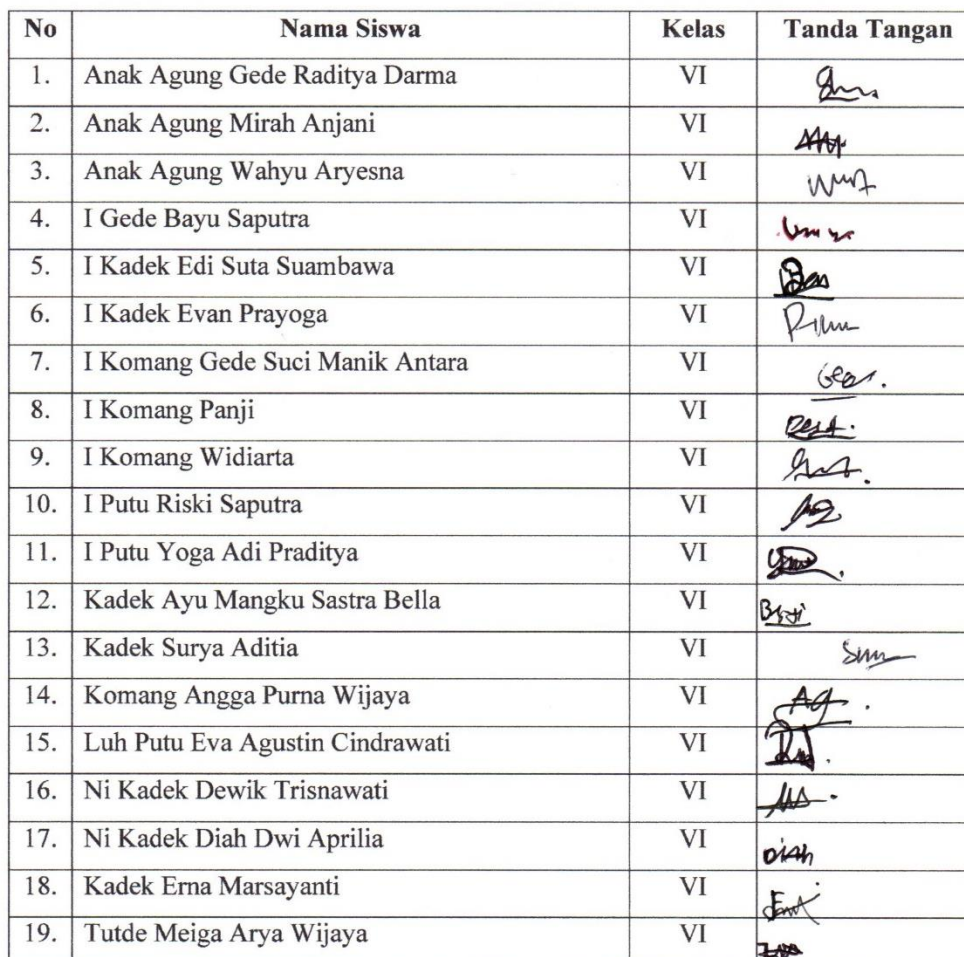 No Nama Siswa Kelas Tanda Tangan
1. Anak Agung Gede Raditya Darma VI
2. Anak Agung Mirah Anjani VI
3. Anak Agung Wahyu Aryesna VI
4. I Gede Bayu Saputra VI
5. I Kadek Edi Suta Suambawa VI
6. I Kadek Evan Prayoga VI
7. I Komang Gede Suci Manik Antara VI
8. I Komang Panji VI
9. I Komang Widiarta VI
10. I Putu Riski Saputra VI
11. I Putu Yoga Adi Praditya VI
12. Kadek Ayu Mangku Sastra Bella VI
13. Kadek Surya Aditia VI
14. Komang Angga Purna Wijaya VI
15. Luh Putu Eva Agustin Cindrawati VI
16. Ni Kadek Dewik Trisnawati VI
17. Ni Kadek Diah Dwi Aprilia VI Diah
18. Kadek Erna Marsayanti VI
19. Tutde Meiga Arya Wijaya VI